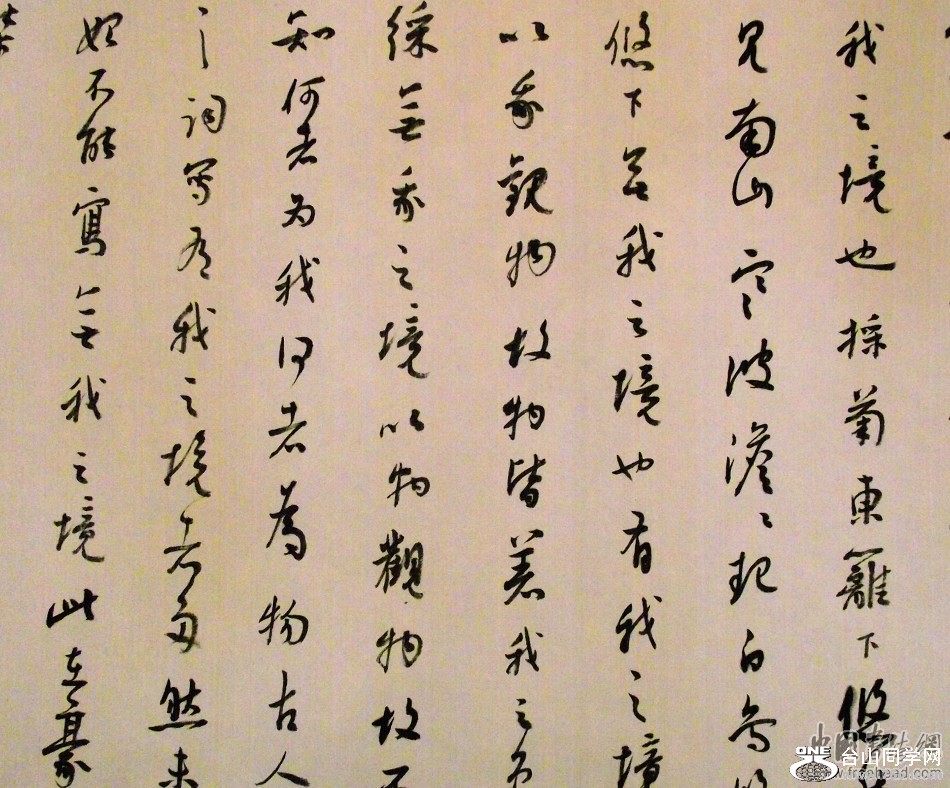 我之境也採菊東籬下悠
見南山寒波澹〻起白鳥悠
悠下無我之境也有我之境
以我觀物故物皆著我之色
綵無我之境以物觀物故不
知何者为我何者為物古人
詞寫有我之境者多然未
始不能寫無我之境此在豪
ONE 台山同学网